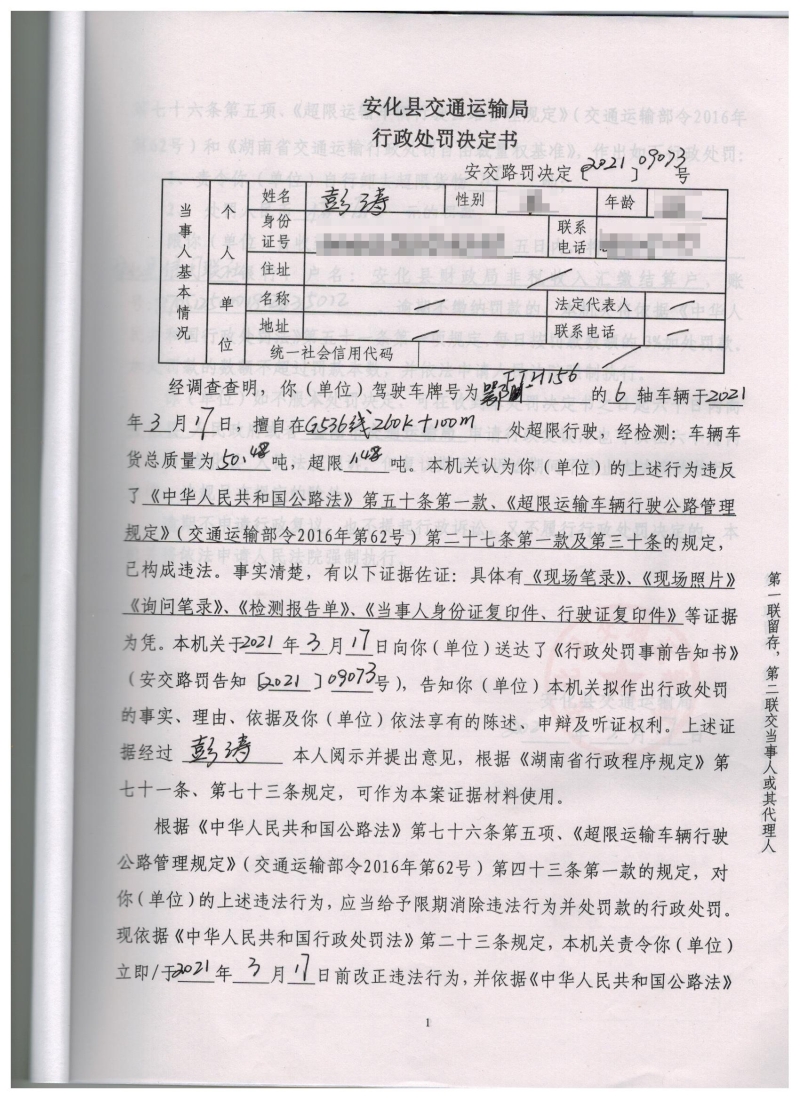 安化县交通运输局
行政处罚决定书
安交路罚决定〔2021〕09073号
当事人基本情况
个人
姓名 彭涛 性别 年龄
身份证号 联系电话
住址
单位
名称 法定代表人
地址 联系电话
统一社会信用代码
经调查查明，你（单位）驾驶车牌号为 的6轴车辆于2021
年3月17，擅自在G536线260K+100m处超限行驶，经检测：车辆车
货总质量为50.48吨，超限1.48吨。本机关认为你（单位）的上述行为违反
了《中华人民共和国公路法》第五十条第一款、《超限运输车辆行驶公路管理
规定》（交通运输部令2016年第62号）第二十七条第一款及第三十条的规定，
已构成违法。事实清楚，有以下证据佐证：具体有《现场笔录》、《现场照片》
《询问笔录》、《检测报告单》、《当事人身份证复印件、行驶证复印件》等证据
为凭。本机关于2021年3月17日向你（单位）送达了《行政处罚事前告知书》
（安交路罚告知〔2021〕09073号），告知你（单位）本机关拟作出行政处罚
的事实、理由、依据及你（单位）依法享有的陈述、申辩及听证权利。上述证
据经过 彭涛 本人阅示并提出意见，根据《湖南省行政程序规定》第
七十一条、第七十三条规定，可作为本案证据材料使用。
根据《中华人民共和国公路法》第七十六条第五项、《超限运输车辆行驶
公路管理规定》（交通运输部令2016年第62号）第四十三条第一款的规定，对
你（单位）的上述违法行为，应当给予限期消除违法行为并处罚款的行政处罚。
现依据《中华人民共和国行政处罚法》第二十三条规定，本机关责令你（单位）
立即/于2021年3月17日前改正违法行为，并依据《中华人民共和国公路法》
第一联留存，第二联交当事人或其代理人
1